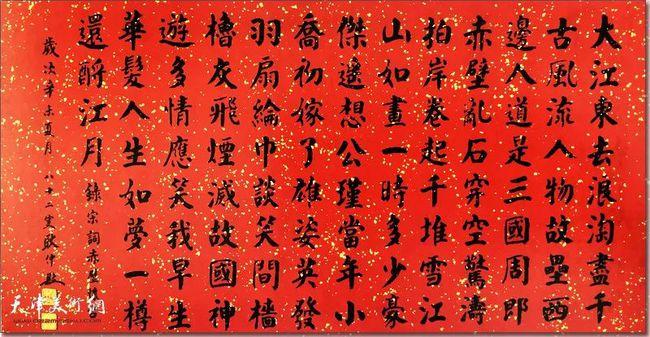 大江東去浪淘盡千
古風流人物故壘西
邊人道是三國周郎
赤壁亂石穿空驚濤
拍岸卷起千堆雪江
山如畫一時多少豪
傑遙想公瑾當年小
喬初嫁了雄姿英發
羽扇綸巾談笑間檣
櫓灰飛煙滅故國神
遊多情應笑我早生
華髮人生如夢一樽
還酹江月 錄宋詞赤壁
歲次辛未夏月 八十二叟
天津美術網